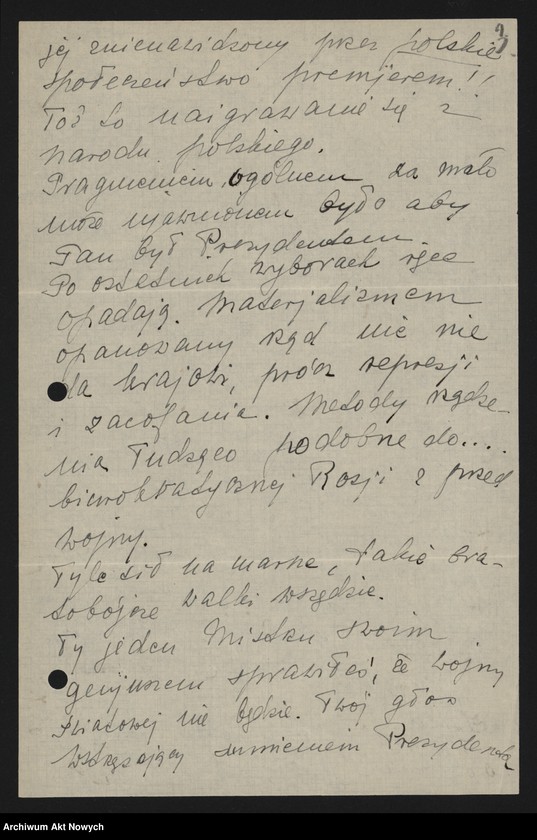 9)
jej znienawidzony przez polskie
społeczeństwo premjerem!!
Toż to naigrawanie się z
narodu polskiego.
Pragnieniem ogólnem za mało
może ujawnionem było aby
Pan był Prezydentem.
Po ostatnich wyborach ręce
opadają. Materjalizmem
opanowany rząd nic nie
da krajowi, prócz represji
i zacofania. Metody rządze-
nia łudząco podobne do....
biurokratycznej Rosji z przed
wojny.
Tyle sił na marne, takie bra-
tobójcze walki wszędzie.
Ty jeden Mistrzu swoim
genjuszem sprawiłeś, że wojny
światowej nie będzie. Twój głos
wstrząsający sumieniem Prezydenta
Archiwum Akt Nowych